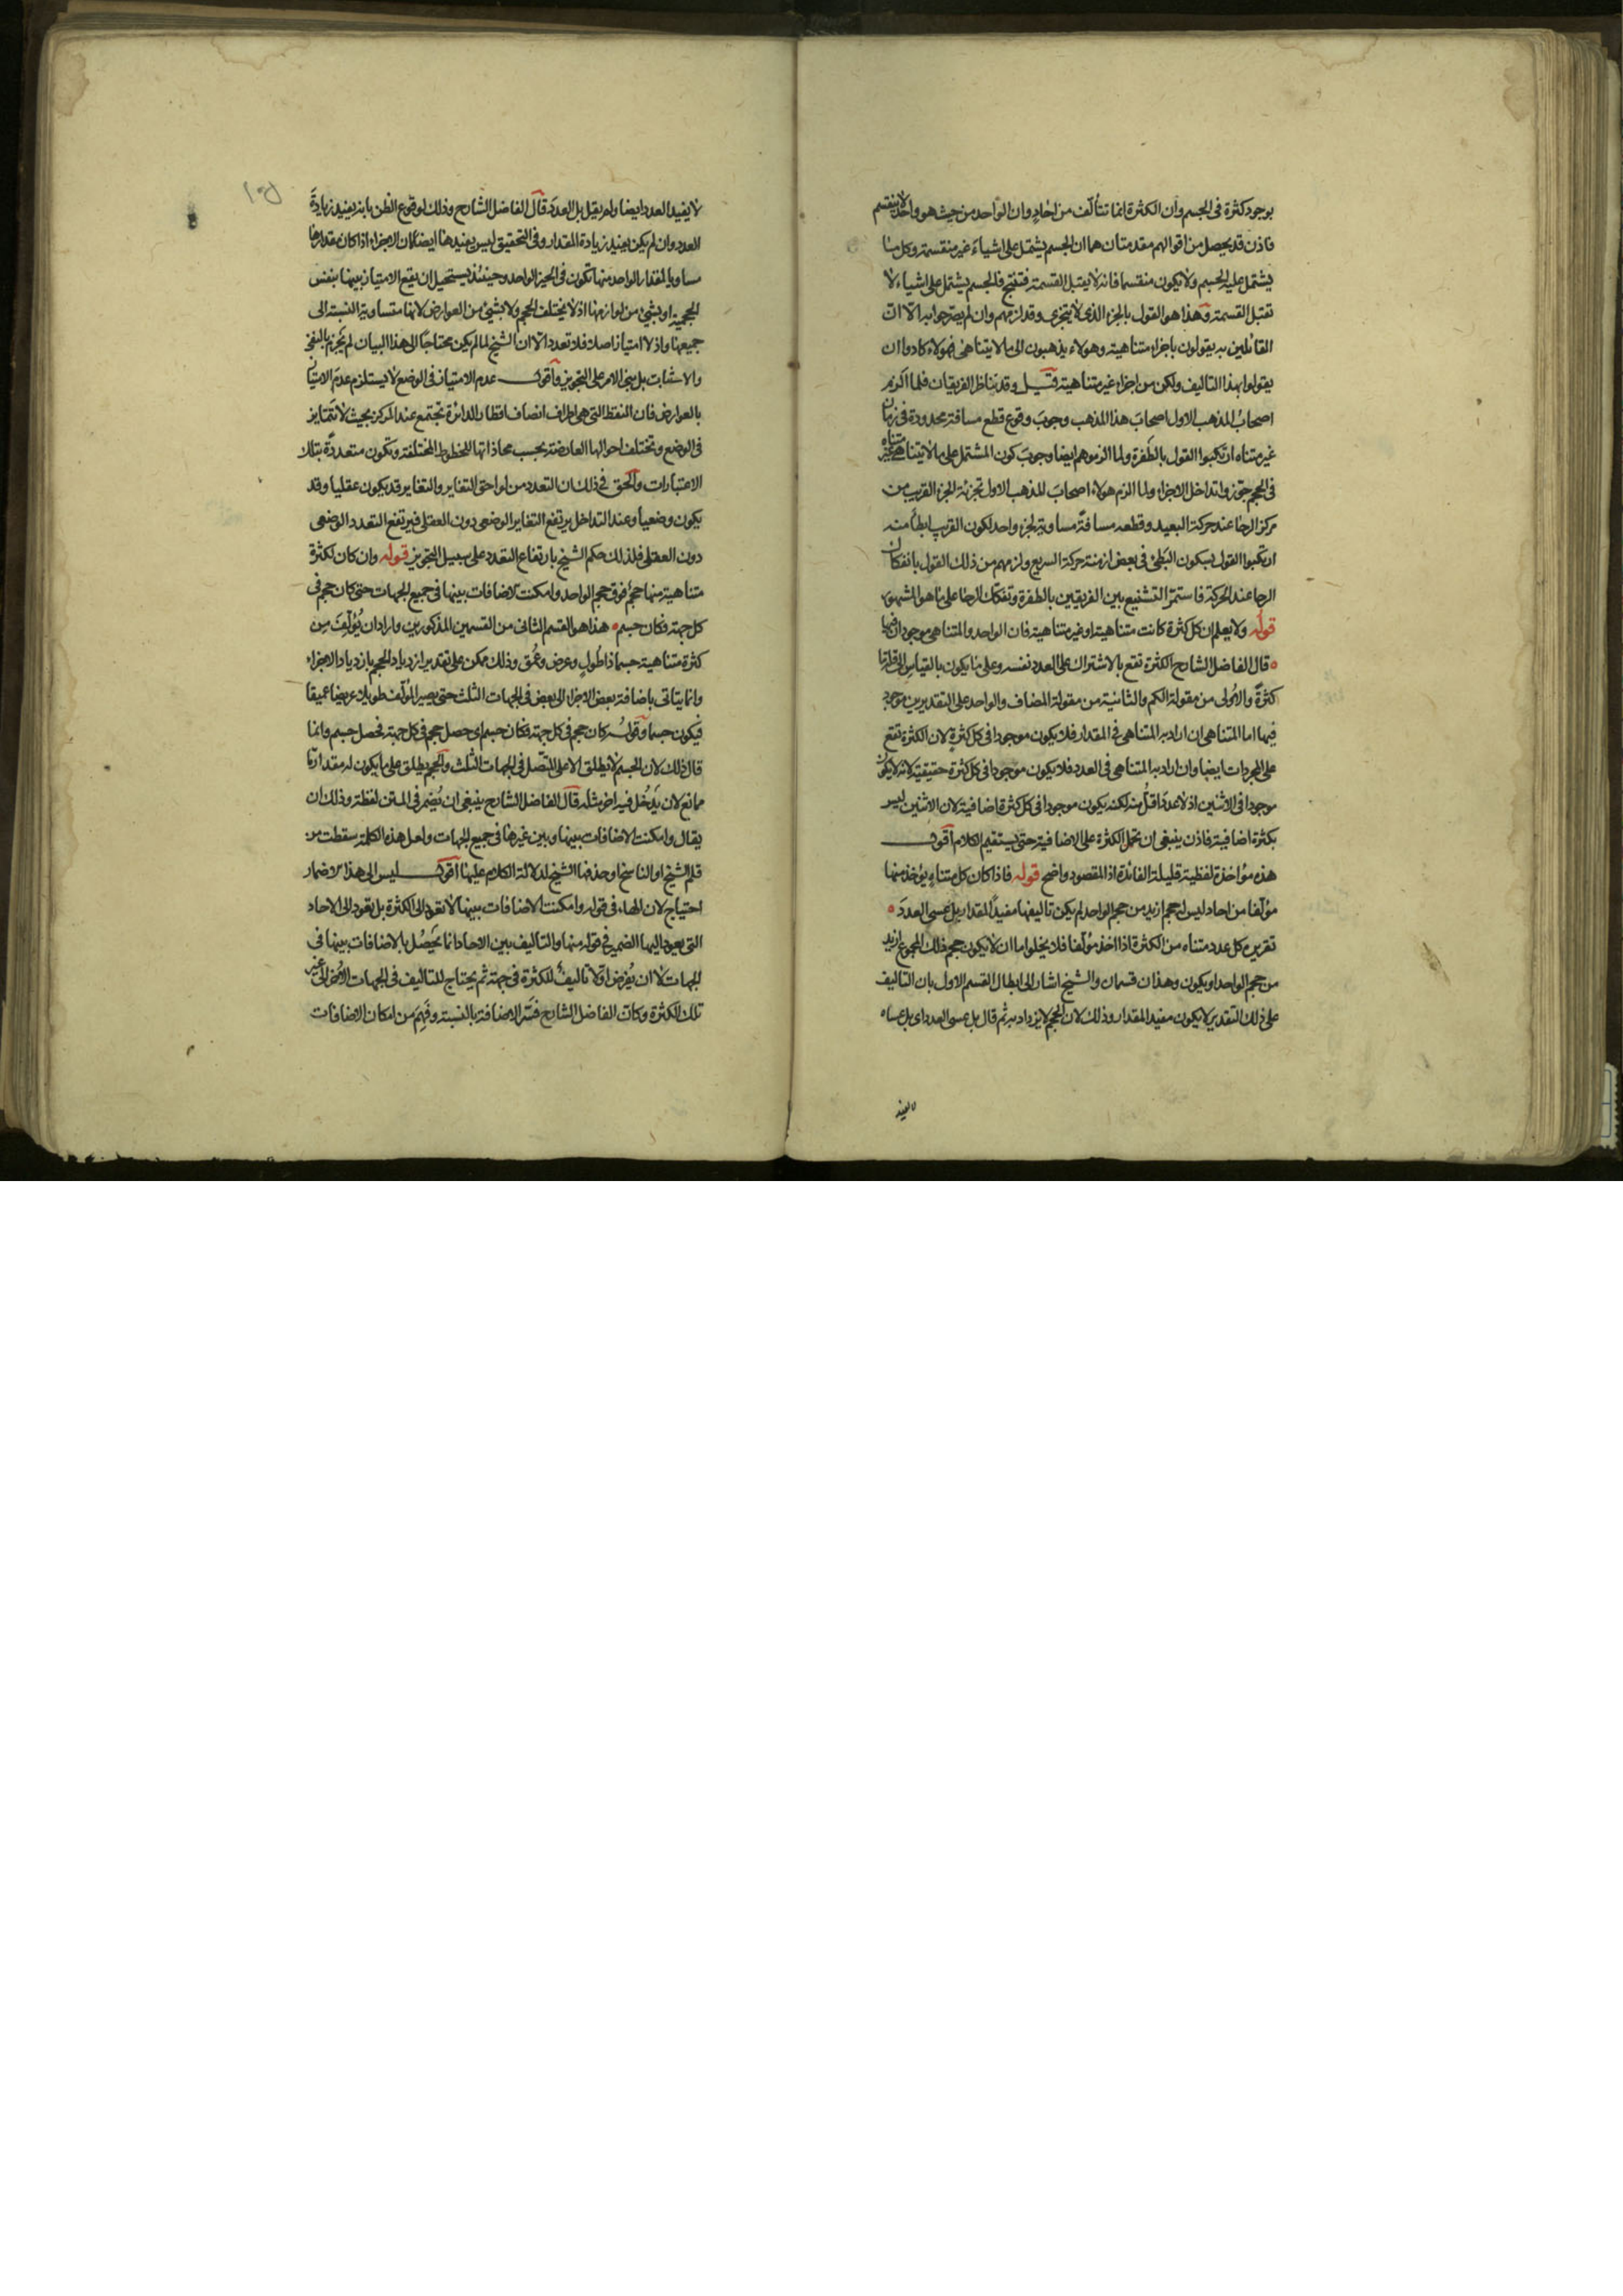 بوجود كثرة فى الجسم وان الكثرة انما تتألف من احاد وان الواحد من حيث هو واحد لا ينقسم
فاذن قد يحصل من اقوالهم مقدمتان هما ان الجسم يشتمل على اشياء غير منقسمة وكل ما
يشتمل عليه الجسم ولا يكون منقسما فانه لا يقبل القسمة فتنتج فالجسم يشتمل على اشياء لا
تقبل القسمة وهذا هو القول بالجزء الذى لا يتجزى وقد لزمهم وان لم يصرحوا به الا ان
القائلين به يقولون باجزاء متناهية وهولاء يذهبون الى ما لا يتناهى فهولاء كادوا ان
يقولوا بهذا التاليف ولكن من اجزاء غير متناهية قيل وقد تناظر الفريقان فلما الزم
اصحاب المذهب الاول اصحاب هذا المذهب وجوب وقوع قطع مسافة محدودة فى زمان
غير متناه ارتكبوا القول بالطفرة ولما الزموهم ايضا وجوب كون المشتمل على ما لا يتناهى غير متناه
فى الحجم جوزوا تداخل الاجزاء ولما الزم هولاء اصحاب المذهب الاول تجزئة الجزء القريب من
مركز الرحا عند حركة البعيد وقطعه مسافة مساوية لجزء واحد لكون القريب ابطأ منه
ارتكبوا القول بسكون البطئ فى بعض ازمنة حركة السريع ولزمهم من ذلك القول بانفكاك
الرحا عند الحركة فاستمر التشنيع بين الفريقين بالطفرة وتفكك الرحا على ما هو المشهور
قوله ولا يعلم ان كل كثرة كانت متناهية او غير متناهية فان الواحد والمتناهى موجودان فيها
قال الفاضل الشارح الكثرة تقع بالاشتراك على العدد نفسه وعلى ما يكون بالقياس الى قلة ما
كثرة والاولى من مقولة الكم والثانية من مقولة المضاف والواحد على التقديرين موجود
فيها اما المتناهى ان اراد به المتناهى فى المقدار فلا يكون موجودا فى كل كثرة لان الكثرة تقع
على المجردات ايضا وان اراد به المتناهى فى العدد فلا يكون موجودا فى كل كثرة حقيقية لانه لا يكون
موجودا فى الاثنين اذ لا عدد اقل منه لكنه يكون موجودا فى كل كثرة اضافية لان الاثنين ليس
بكثرة اضافية فاذن ينبغى ان تحمل الكثرة على الاضافية حتى يستقيم الكلام اقول
هذه مؤاخذة لفظية قليلة الفائدة اذ المقصود واضح قوله فاذا كان كل متناه يؤخذ منها
مؤلفا من احاد ليس له حجم ازيد من حجم الواحد لم يكن تاليفها مفيدا المقدار بل عسى العدد
تقريره كل عدد متناه من الكثرة اذا اخذ مؤلفا فلا يخلو اما ان لا يكون حجم ذلك المجموع ازيد
من حجم الواحد او يكون وهذان قسمان والشيخ اشار الى ابطال القسم الاول بان التاليف
على ذلك التقدير لا يكون مفيد المقدار وذلك لان الحجم لا يزداد به ثم قال بل عسى العدد اى بل عساه
لا يفيد
لا يفيد العدد ايضا ولم يقل بل العدد قال الفاضل الشارح وذلك لوقوع الظن بانه يفيد زيادة
العدد وان لم يكن يفيد زيادة المقدار وفى التحقيق ليس يفيدها ايضا لان الاجزاء اذا كان مقدارها
مساويا لمقدار الواحد منها تكون فى الحيز الواحد وحينئذ يستحيل ان يقع الامتياز بينها بنفس
الحجمية او بشئ من لوازمها اذ لا يختلف الحجم ولا بشئ من العوارض لانها متساوية النسبة الى
جميعها واذ لا امتياز اصلا فلا تعدد الا ان الشيخ لما لم يكن محتاجا الى هذا البيان لم يجزم بالنفى
والاثبات بل بنى الامر على التجويز واقول عدم الامتياز فى الوضع لا يستلزم عدم الامتياز
بالعوارض فان النقط التى هى اطراف انصاف اقطار الدائرة تجتمع عند المركز بحيث لا تتمايز
فى الوضع وتختلف احوالها العارضة بحسب محاذاتها للخطوط المختلفة وتكون متعددة بتلك
الاعتبارات والحق فى ذلك ان التعدد من لواحق التغاير والتغاير قد يكون عقليا وقد
يكون وضعيا وعند التداخل يرتفع التغاير الوضعى دون العقلى فيرتفع التعدد الوضعى
دون العقلى فلذلك حكم الشيخ بارتفاع التعدد على سبيل التجويز قوله وان كان لكثرة
متناهية منها حجم فوق حجم الواحد وامكنت الاضافات بينها فى جميع الجهات حتى كان حجم فى
كل جهة فكان جسم هذا هو القسم الثانى من القسمين المذكورين واراد ان يؤلف من
كثرة متناهية جسما ذا طول وعرض وعمق وذلك ممكن على تقدير ازدياد الحجم بازدياد الاجزاء
وانما يتاتى باضافة بعض الاجزاء الى بعض فى الجهات الثلث حتى يصير المؤلف طويلا عريضا عميقا
فيكون جسما وقوله كان حجم فى كل جهة فكان جسم اى حصل حجم فى كل جهة فحصل جسم وانما
قال ذلك لان الجسم لا يطلق الا على المتصل فى الجهات الثلث والحجم يطلق على ما يكون له مقدار ما
مانع لان يدخل فيه اخر مثله قال الفاضل الشارح ينبغى ان يضمر فى المتن لفظة وذلك ان
يقال وامكنت الاضافات بينها وبين غيرها فى جميع الجهات ولعل هذه الكلمة سقطت من
قلم الشيخ او الناسخ او حذفها الشيخ لدلالة الكلام عليها اقول ليس الى هذا الاضمار
احتياج لان الهاء فى قوله وامكنت الاضافات بينها لا تعود الى الكثرة بل يعود الى الاحاد
التى يعود اليها الضمير فى قوله منها والتاليف بين الاحاد انما يحصل بالاضافات بينها فى
الجهات لا ان يفرض اولا تاليف للكثرة فى جهة ثم يحتاج للتاليف فى الجهات الاخر الى غير
تلك الكثرة وكان الفاضل الشارح فسر الاضافة بالنسبة وفهم من امكان الاضافات